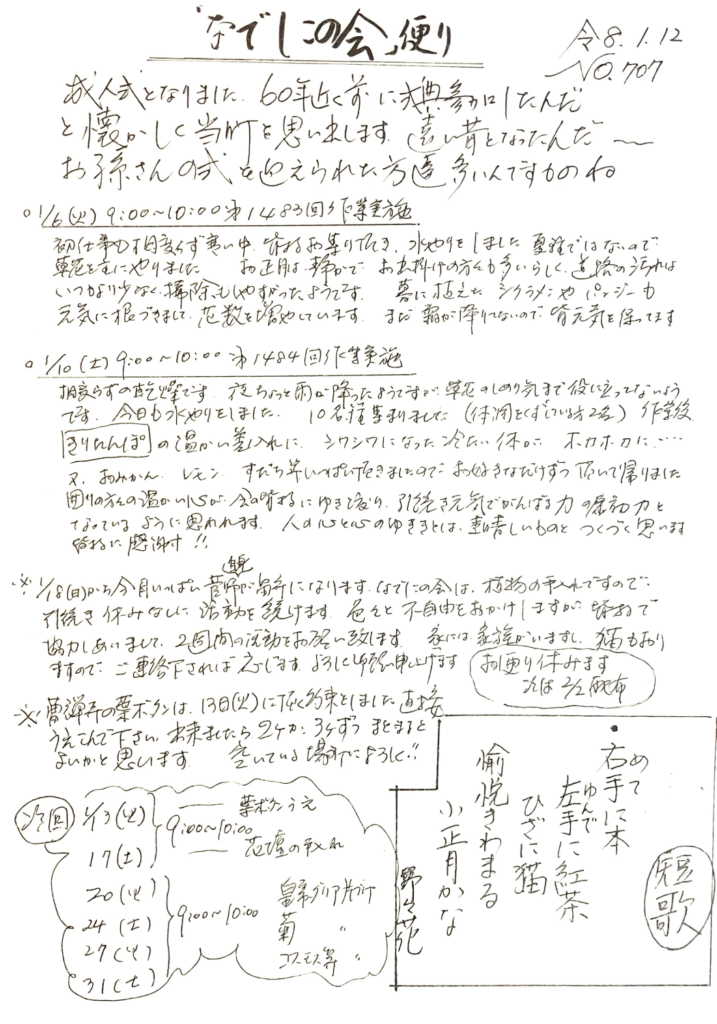 「なでしこの会」便り
令8.1.12
NO.707
成人式となりました。60年近く前に式典参加したんだ
と懐かしく当時を思い出します。遠い昔となったんだ〜
お孫さんの式を迎えられた方達多いんですものね
○1/6(火) 9:00〜10:00 第1483回作業実施
初仕事も相変らず寒い中、皆様お集り頂き、水やりをしました 全部ではないので
草花を主にやりました お正月は静かで お出掛けの方々も多いらしく、道路の汚れは
いつもより少なく掃除もしやすかったようです。 暮に植えた シクラメンや パンジーも
元気に根づきまして、花数を増やしています。 まだ霜が降りてないので皆元気を保ってます
○1/10(土) 9:00〜10:00 第1484回作業実施
相変らずの乾燥です。夜ちょっと雨が降ったようですが、草花のしめり気まで役に立ってないよう
です。今日も水やりをしました。 10名程集まりました (体調をくずしている方2名) 作業後
きりたんぽの温かい差入れに、シワシワになった冷たい体が、ホカホカに……
又、おみかん、レモン、すだち等いっぱい頂きましたので、お好きなだけずつ頂いて帰りました
囲りの方々の温かい心が、会の皆様にゆき渡り、引続き元気でがんばる力の原動力と
なっているように思われます。人の心と心のゆききとは、素晴しいものと つくづく思います
皆様に感謝!!
※1/18(日)から今月いっぱい菅野が留守になります。なでしこの会は、植物の手入れですので、
引続き休みなしに活動を続けます。色々と不自由をおかけしますが、皆様で
協力しあいまして、2週間の活動をお願い致します 家には家族がいますし、猫もおり
ますので、ご連絡下されば応じます。よろしくお願い申し上げます
お便り休みます
次は2/2配布
※曹禅寺の葉ボタンは、13日(火)に頂く約束としました 直接
うえこんで下さい。出来ましたら2ケか3ケずつ まとまると
よいかと思います 空いている場所によろしく!!
次回
1/13(火)
17(土)
9:00〜10:00
葉ボタンうえ
花壇の手入れ
20(火)
24(土)
27(火)
31(土)
9:00〜10:00
皇帝ダリア片づけ
菊 〃
コスモス等 〃
短歌
・右手に本
めて
左手に紅茶
ゆんで
ひざに猫
愉悦きわまる
小正月かな
野生花